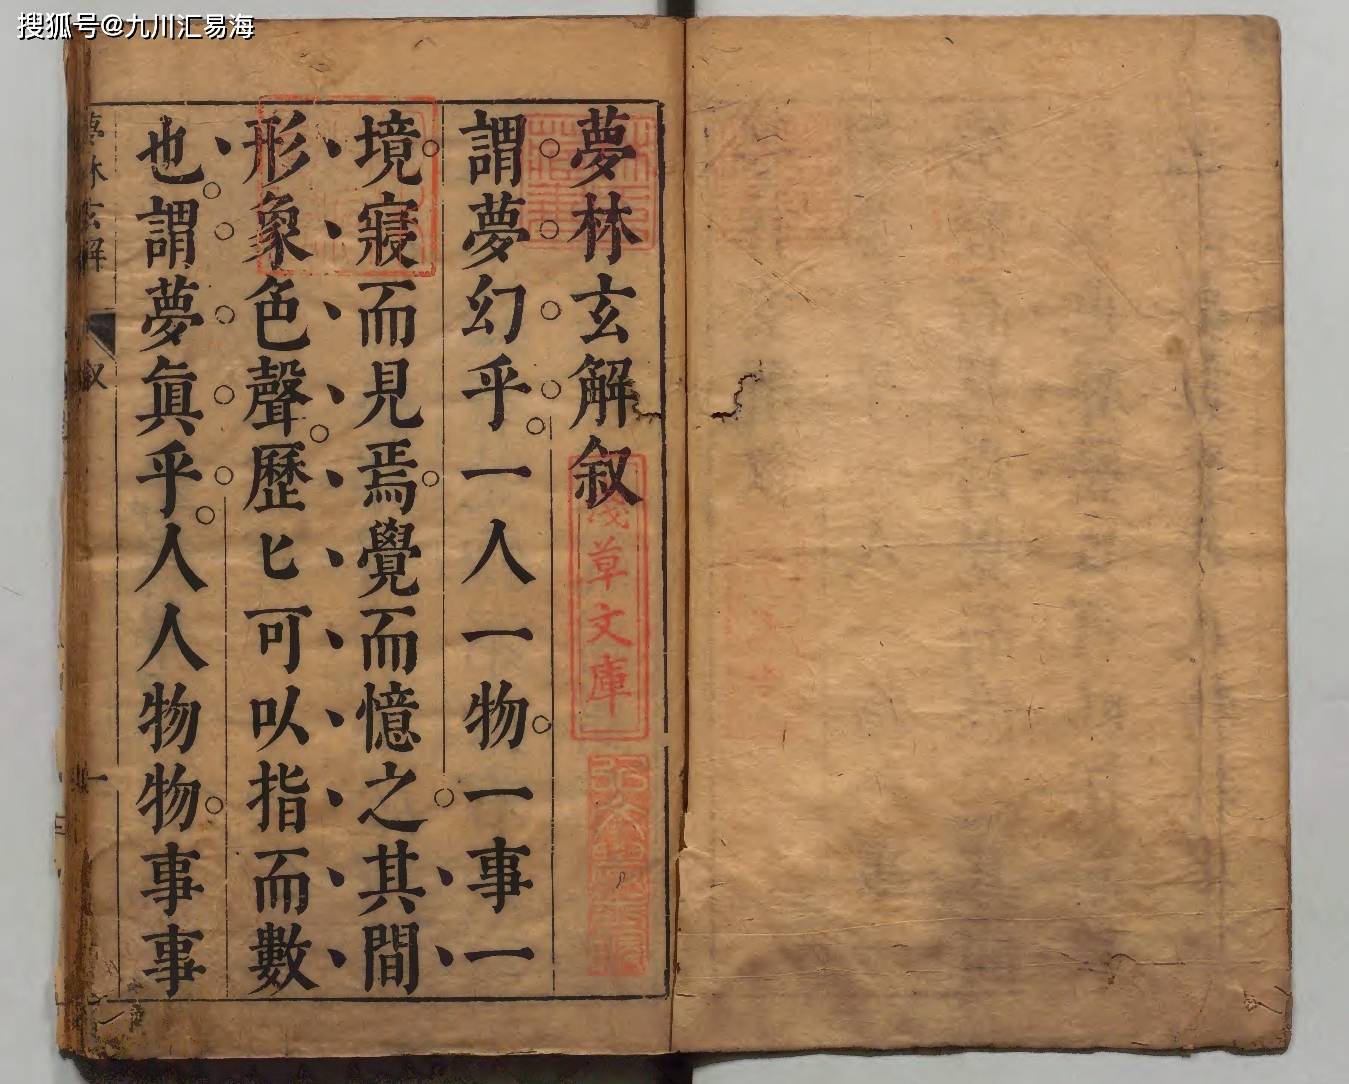 搜狐号@九川汇易海
夢林玄解叙
謂夢幻乎一人一物一事一
境寢而見焉覺而憶之其間
形象色聲歷匕可以指而數
也謂夢眞乎人人物物事事
夢林玄解
叙
一
淺草文庫